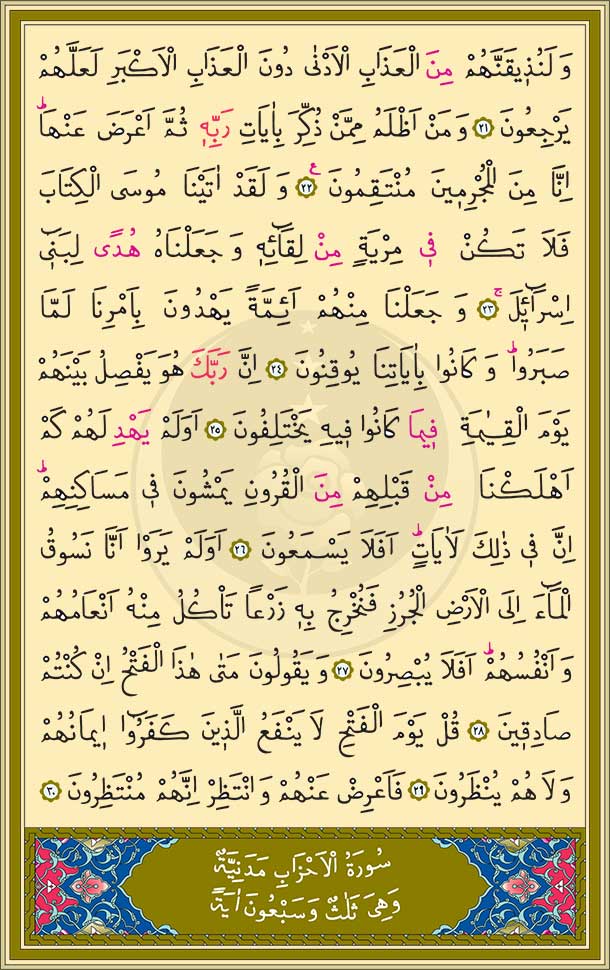 وَلَنُذٖيقَنَّهُمْ مِنَ الْعَذَابِ الْاَدْنٰى دُونَ الْعَذَابِ الْاَكْبَرِ لَعَلَّهُمْ
يَرْجِعُونَ ﴿٢١﴾ وَمَنْ اَظْلَمُ مِمَّنْ ذُكِّرَ بِاٰيَاتِ رَبِّهٖ ثُمَّ اَعْرَضَ عَنْهَاؕ
اِنَّا مِنَ الْمُجْرِمٖينَ مُنْتَقِمُونَ ﴿٢٢﴾ ع وَلَقَدْ اٰتَيْنَا مُوسَى الْكِتَابَ
فَلَا تَكُنْ فٖى مِرْيَةٍ مِنْ لِقَٓائِهٖ وَجَعَلْنَاهُ هُدًى لِبَنٖٓى
اِسْرَٓائٖلَۚ ﴿٢٣﴾ وَجَعَلْنَا مِنْهُمْ اَئِمَّةً يَهْدُونَ بِاَمْرِنَا لَمَّا
صَبَرُواؕ وَكَانُوا بِاٰيَاتِنَا يُوقِنُونَ ﴿٢٤﴾ اِنَّ رَبَّكَ هُوَ يَفْصِلُ بَيْنَهُمْ
يَوْمَ الْقِيٰمَةِ فٖيمَا كَانُوا فٖيهِ يَخْتَلِفُونَ ﴿٢٥﴾ اَوَلَمْ يَهْدِ لَهُمْ كَمْ
اَهْلَكْنَا مِنْ قَبْلِهِمْ مِنَ الْقُرُونِ يَمْشُونَ فٖى مَسَاكِنِهِمْؕ
اِنَّ فٖى ذٰلِكَ لَاٰيَاتٍؕ اَفَلَا يَسْمَعُونَ ﴿٢٦﴾ اَوَلَمْ يَرَوْا اَنَّا نَسُوقُ
الْمَٓاءَ اِلَى الْاَرْضِ الْجُرُزِ فَنُخْرِجُ بِهٖ زَرْعًا تَاْكُلُ مِنْهُ اَنْعَامُهُمْ
وَاَنْفُسُهُمْؕ اَفَلَا يُبْصِرُونَ ﴿٢٧﴾ وَيَقُولُونَ مَتٰى هٰذَا الْفَتْحُ اِنْ كُنْتُمْ
صَادِقٖينَ ﴿٢٨﴾ قُلْ يَوْمَ الْفَتْحِ لَا يَنْفَعُ الَّذٖينَ كَفَرُٓوا اٖيمَانُهُمْ
وَلَا هُمْ يُنْظَرُونَ ﴿٢٩﴾ فَاَعْرِضْ عَنْهُمْ وَانْتَظِرْ اِنَّهُمْ مُنْتَظِرُونَ ﴿٣٠﴾
سُورَةُ الْاَحْزَابِ مَدَنِيَّةٌ
وَهِىَ ثَلٰثٌ وَسَبْعُونَ اٰيَةً